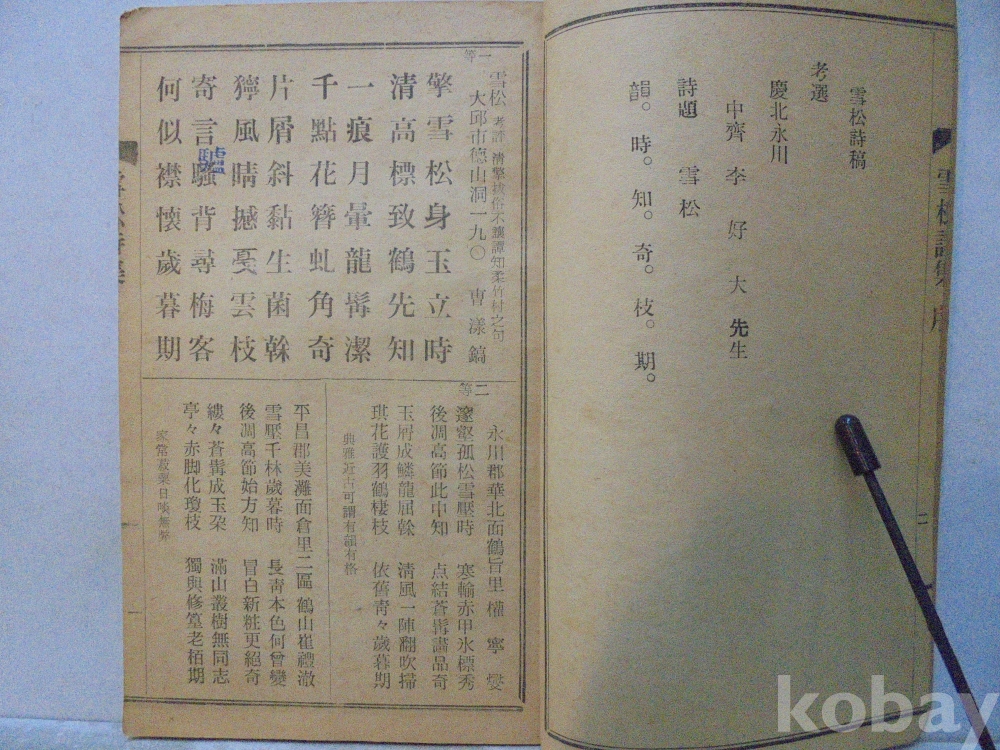 雪松詩稿
考選
慶北永川
中齊 李好大 先生
詩題 雪松
韻。時。知。奇。枝。期。
一等
雪松 考評 淸警拔俗不讓譚知柔竹村之句
大邱市德山洞一九〇 曺漾鎬
擎雪松身玉立時
清高標致鶴先知
一痕月暈龍髯潔
千點花簪虬角奇
片屑斜黏生菌榦
獰風時撼戞雲枝
寄言騷背尋梅客
驢
何似襟懷歲暮期
二等
永川郡華北面鶴旨里 權寧燮
邃壑孤松雪壓時 寒輸赤甲氷標秀
後凋高節此中知 点結蒼髯譪品奇
玉屑成鱗龍屈榦 淸風一陣翻吹掃
琪花護羽鶴棲枝 依舊靑々歲暮期
典雅近古可謂有韻有格
平昌郡美灘面倉里二區 鶴山崔禮澈
雪壓千林歲暮時 長靑本色何曾變
後凋高節始方知 冒白新粧更絕奇
縷々蒼髯成玉朶 滿山叢樹無同志
亭々赤脚化瓊枝 獨與修篁老栢期
家常菽粟日啖無弊
二
kobay